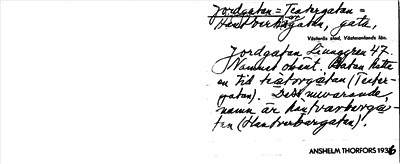 Jordgatan = Teatergatan =
Hantverkargatan, gata,
Västerås stad, Västmanlands län.
Jordgatan Linngren 47.
Namnet obest. Gatan hette
en tid teatorgåtan (Teater-
gatan). Dess nuvarande
namn är hantvarkargå-
tan (Hantverkargatan).
ANSHELM THORFORS 1936